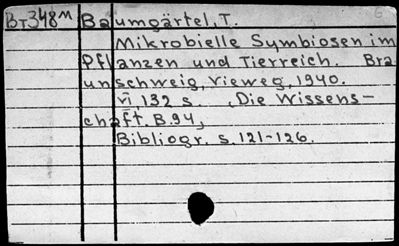 BT348M Baumgärtel, T.
Mikrobielle Symbiosen im
Pflanzen und Tierreich. Bra
unschweig, Vieweg, 1940.
VI, 132 s. , Die Wissens-
chaft. B.94,
Bibliogr. s. 121-126.